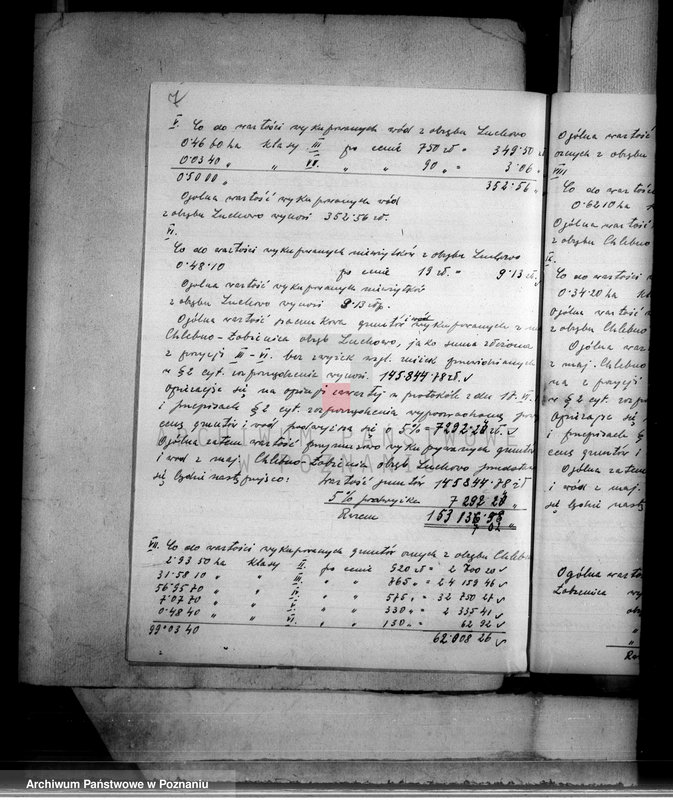 7
V. Co do wartości wykupywanych wód z obrębu Luchowo
0.46 60 ha klasy III po cenie 750 zł = 349.50 zł
0.03 40 " " VI. " " 90 " = 3.06 "
0.50 00 " 352.56 "
Ogólna wartość wykupywanych wód
z obrębu Luchowo wynosi 352.56 zł.
VI.
Co do wartości wykupywanych nieużytków z obrębu Luchowo
0.48.10 po cenie 19 zł = 9.13 zł.
Ogólna wartość wykupywanych nieużytków
z obrębu Luchowo wynosi 9.13 zł.
Ogólna wartość szacunkowa gruntów i wód wykupywanych z maj.
Chlebno-Łobżenica obręb Luchowo, jako suma
z pozycji III - VI. bez zwyżek wzgl. zniżek przewidzianych
w § 2 cyt. rozporządzenia wynosi. 145.844.78 zł.
Opierając się na opinji zawartej w protokóle z dnia 17. VI.
i przepisach § 2 cyt. rozporządzenia wyposrodkowaną
cenę gruntów i wód podwyższa się o 5% = 7292.20 zł.
Ogólna zatem wartość przymusowo wykupywanych gruntów
i wód z maj. Chlebno-Łobżenica obręb Luchowo
się będzie następująco: Wartość gruntów 145 844.78 zł
5% podwyżka 7 292 20 "
Razem 153 136.98 "
VII. Co do wartości wykupywanych gruntów ornych z obrębu Chlebno
2.93 50 ha klasy II. po cenie 920 zł = 2 700 20
31.58 10 " " III. " " 765 " = 24 159 46
56.95 70 " " IV. " " 575 " = 32 750 27
7.07 70 " " V. " " 330 " = 2 335 41
0.48 40 " " VI. " " 130 " = 62 92
99.03 40 62.008 26
Ogólna wartość
ornych z obrębu
VIII
Co do wartości
0.62 10 ha
Ogólna wartość
z obrębu Chlebno
IX.
Co do wartości
0.34.20 ha
Ogólna wartość
z obrębu Chlebno
Ogólna
z maj. Chlebno
na z pozycji
w § 2 cyt.
Opierając się
i przepisach §
cenę gruntów i
Ogólna zatem
i wód z maj.
się będzie
Ogólna wartość
Łobżenica
ARCHIWUM PAŃSTWOWE
W POZNANIU
Archiwum Państwowe w Poznaniu